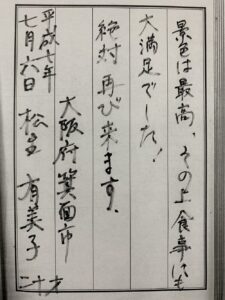 景色は最高、その上食事にも
大満足でした!
絶対再び来ます.
大阪府箕面市
平成七年
七月六日 有美子 二十才